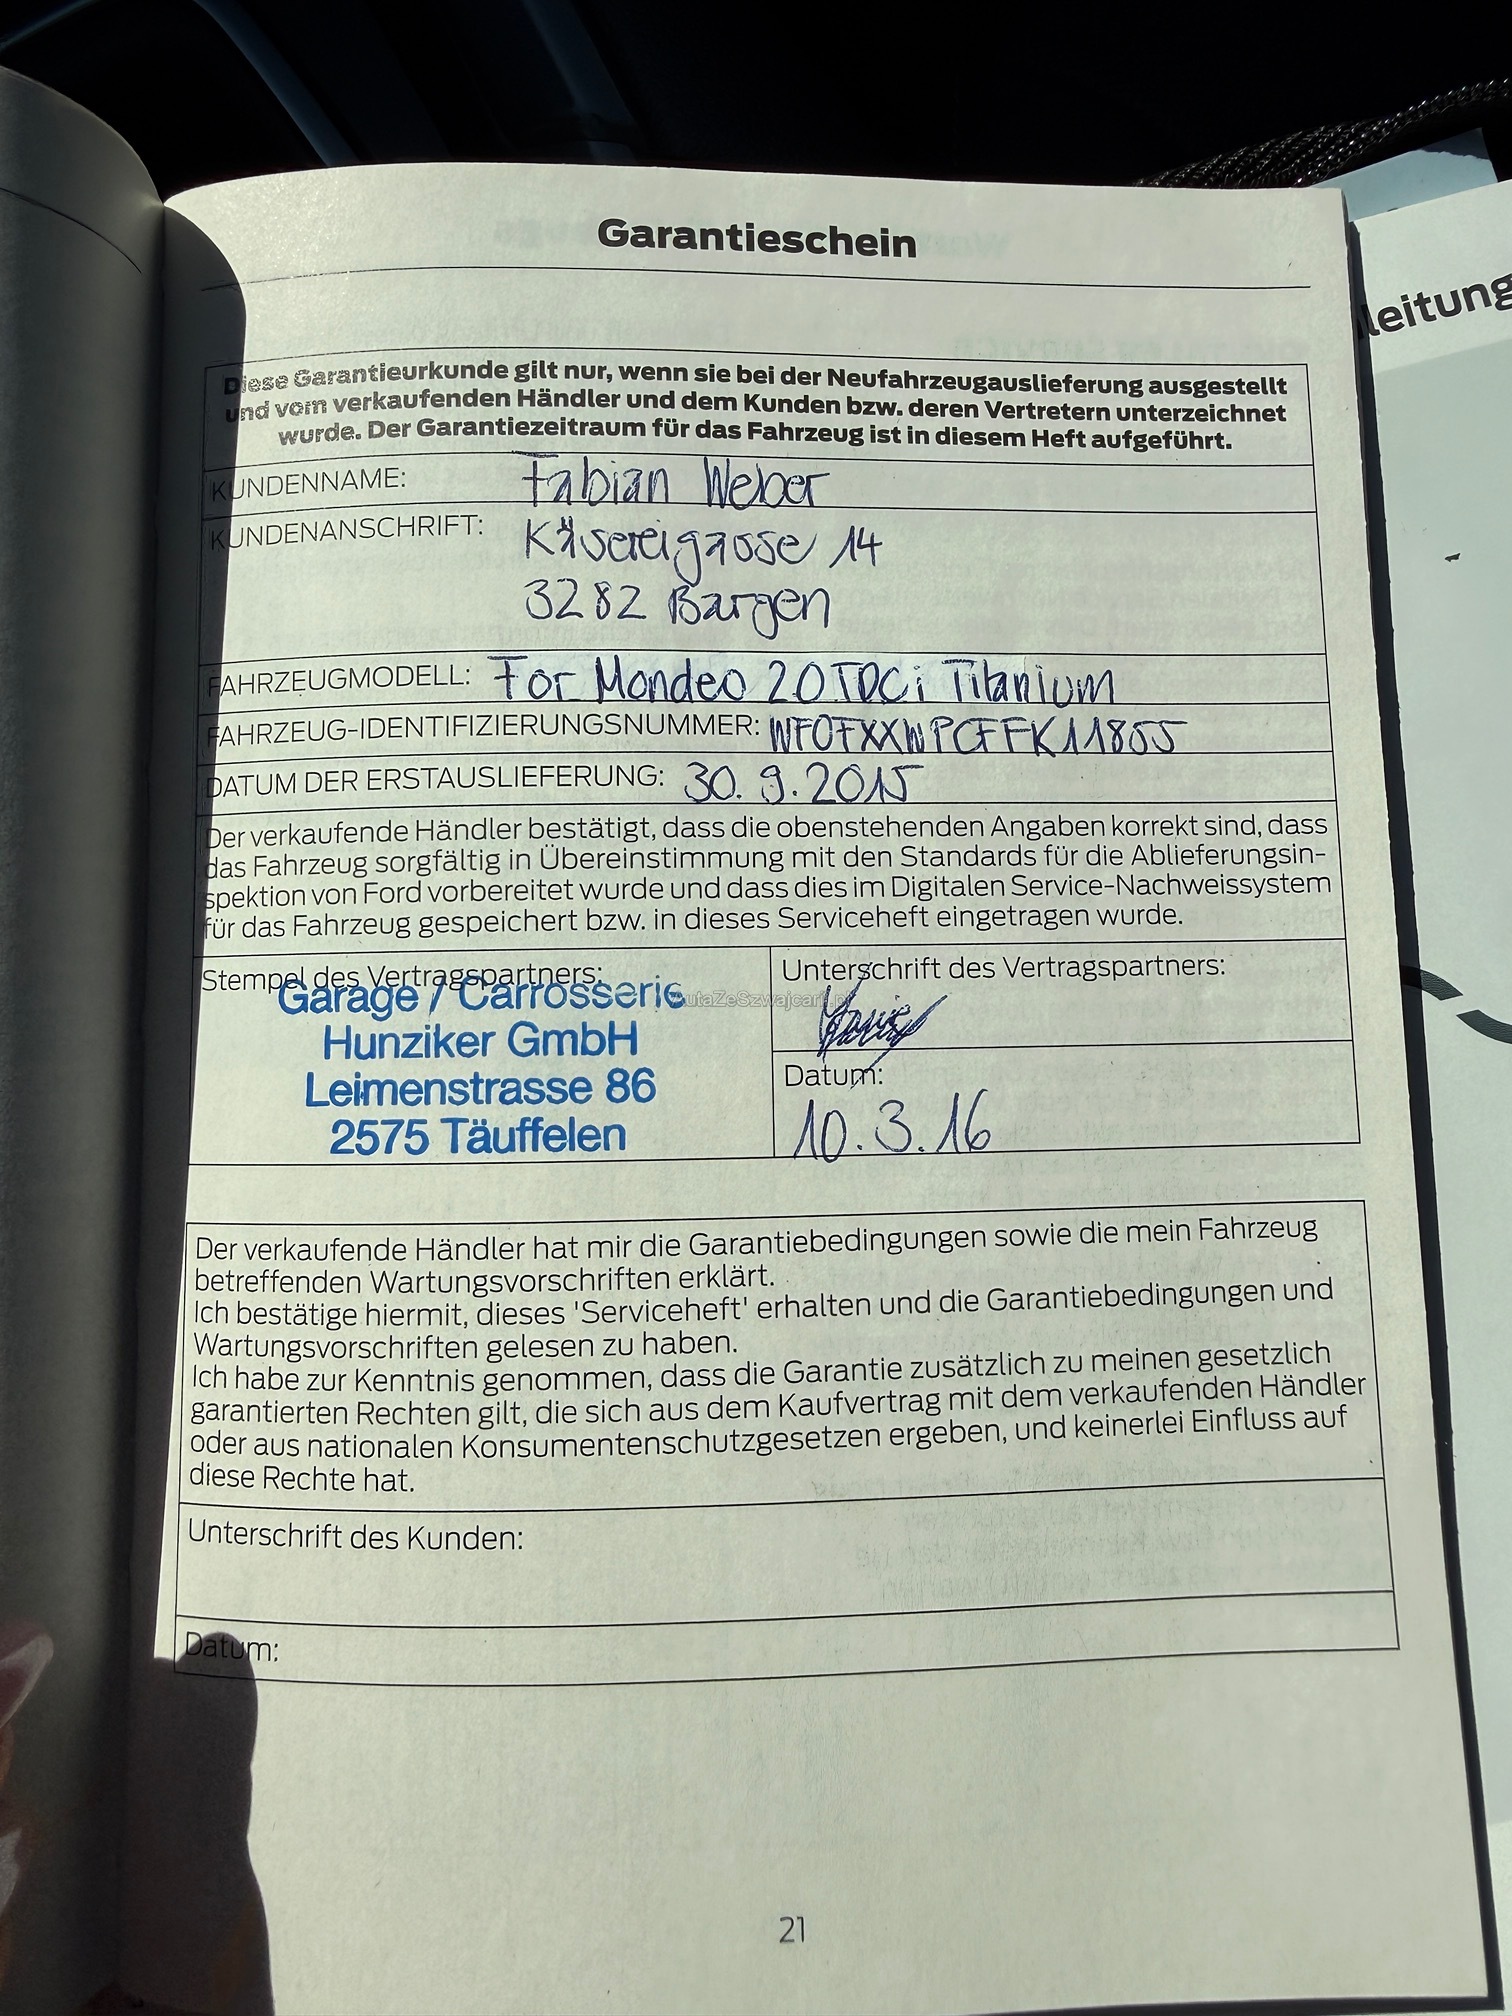 Garantieschein
leitung
Diese Garantieurkunde gilt nur, wenn sie bei der Neufahrzeugauslieferung ausgestellt
und vom verkaufenden Händler und dem Kunden bzw. deren Vertretern unterzeichnet
wurde. Der Garantiezeitraum für das Fahrzeug ist in diesem Heft aufgeführt.
KUNDENNAME: Fabian Weber
KUNDENANSCHRIFT: Käsereigasse 14
3282 Bargen
FAHRZEUGMODELL: For Mondeo 20TDCi Titanium
FAHRZEUG-IDENTIFIZIERUNGSNUMMER:
DATUM DER ERSTAUSLIEFERUNG: 30. 9. 2015
Der verkaufende Händler bestätigt, dass die obenstehenden Angaben korrekt sind, dass
das Fahrzeug sorgfältig in Übereinstimmung mit den Standards für die Ablieferungsin-
spektion von Ford vorbereitet wurde und dass dies im Digitalen Service-Nachweissystem
für das Fahrzeug gespeichert bzw. in dieses Serviceheft eingetragen wurde.
Stempel des Vertragspartners:
Garage / Carrosserie
Hunziker GmbH
Leimenstrasse 86
2575 Täuffelen
AutaZeSzwajcarii.pl
Unterschrift des Vertragspartners:
Datum:
10.3.16
Der verkaufende Händler hat mir die Garantiebedingungen sowie die mein Fahrzeug
betreffenden Wartungsvorschriften erklärt.
Ich bestätige hiermit, dieses 'Serviceheft' erhalten und die Garantiebedingungen und
Wartungsvorschriften gelesen zu haben.
Ich habe zur Kenntnis genommen, dass die Garantie zusätzlich zu meinen gesetzlich
garantierten Rechten gilt, die sich aus dem Kaufvertrag mit dem verkaufenden Händler
oder aus nationalen Konsumentenschutzgesetzen ergeben, und keinerlei Einfluss auf
diese Rechte hat.
Unterschrift des Kunden:
Datum:
21